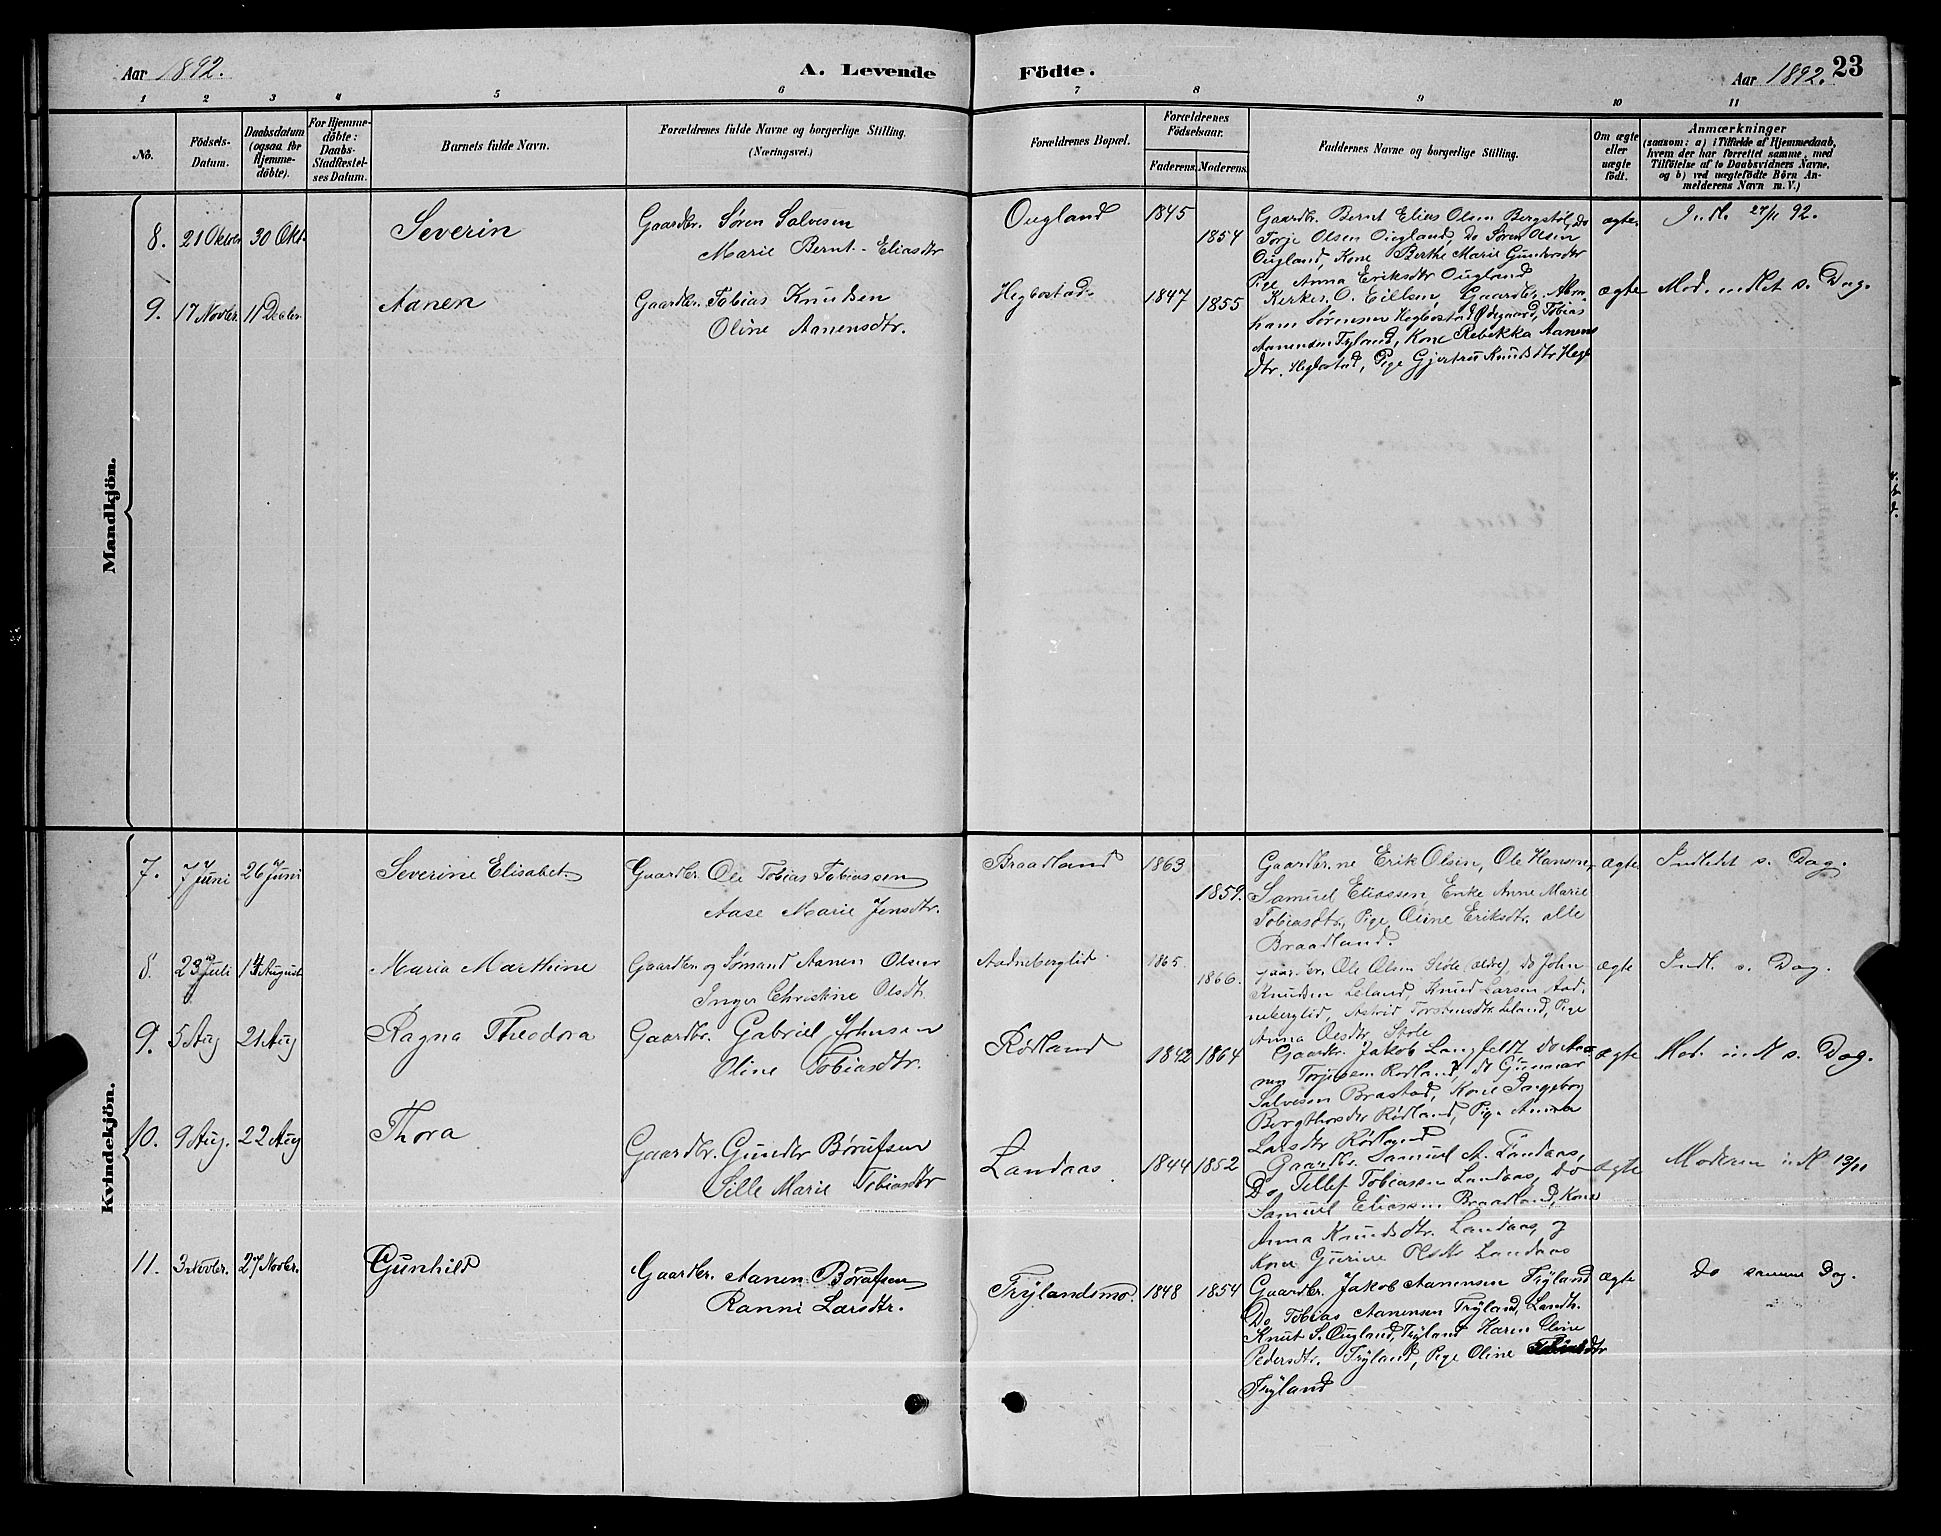 Aar 1892.
A. Levende Födte.
Aar 1892. 23
1 2 3 4 5 6 7 8 9 10 11
No.
Födsels-
Datum.
Daabsdatum
(ogsaa for
Hjemme-
döbte).
For Hjemme-
döbte:
Daabs-
Stadfæstel-
ses Datum.
Barnets fulde Navn.
Forældrenes fulde Navne og borgerlige Stilling.
(Næringsvei.)
Forældrenes Bopæl.
Forældrenes
Födselsaar.
Faderens. Moderens.
Faddernes Navne og borgerlige Stilling.
Om ægte
eller
uægte
födt.
Anmærkninger
(saasom: a) i Tilfælde af Hjemmedaab,
hvem der har forrettet samme, med
Tilföielse af to Daabsvidners Navne,
og b) ved uægtefödte Börn An-
melderens Navn m. V.)
Mandkjön.
8. 21 Oktober 30 Okt. Severin
Gaardbr. Søren Salvesen
Marie Bernt-Eliasdtr
Ougland 1845 1854
Gaardbr. Bernt Elias Olsen Bergstøl, Do
Torje Olsen Ougland, Do Søren Olsen
Ougland, Kone Berthe Marie
Pige Anna Eriksdtr Ougland
ægte Indl. 27/11 92.
9. 17 Novbr. 11 Decbr. Aanen
Gaardbr. Tobias Knudsen
Oline Aanensdtr.
Hegbostad 1847 1855
Kirkes. O. Eilsen, Gaardbr. Abra-
ham Sørensen Hegbostad Ødegaard, Tobias
Aanensen Tyland, Kone Rebekka Aanens
dtr. Hegbostad, Pige Gjertru Knudsdtr Hegb
ægte Mod. indlet s. Dag.
Kvindekjön.
7. 7 Juni 26 Juni Severine Elisabet
Gaardbr. Ole Tobias Tobiassen
Aase Marie Jensdtr.
Braadland 1863 1859.
Gaardbr.ne Erik Olsen, Ole Hansen,
Samuel Eliassen, Enke Anne Marie
Tobiasdtr., Pige Oline Eriksdtr. alle
Braadland.
ægte Indledt s. Dag.
8. 23 Juli 14 August Maria Marthine
Gaardbr. og Sømand Aanen Olsen
Inger Christine Olsdt.
Aadneberglid 1865 1866.
Gaardbr. Ole Olsen Støle (ældre), Do John
Knudsen Leland, Knud Larsen Aad-
neberglid, Astrid Torstensdtr. Leland, Pige
Anna Olsdtr. Støle
ægte Indl. s. Dag.
9. 5 Aug 21 Aug Ragna Theodora
Gaardbr. Gabriel Johnsen
Oline Tobiasdtr.
Rødland 1842 1864
Gaardbr. Jakob Langfeldt, do Aa-
nen Torjusen Rødland, do Gunnar
Salvesen Brastad, Kone Ingeborg
Bergthorsdtr Rødland, Pige Anna
Larsdtr Rødland
ægte Mod. indl. s. Dag.
10. 9 Aug. 22 Aug Thora
Gaardbr. Gunder Børufsen
Sille Marie Tobiasdtr
Landaas 1844 1852
Gaardbr. Samuel A. Landaas,
Do Tellef Tobiassen Landaas, Do
Samuel Eliassen Braadland, Kone
Anna Knudsdtr. Landaas, og
Kone Gurine Olsdtr Landaas
ægte Moderen indl. 13/11
11. 3 Novbr. 27 Novbr. Gunhild
Gaardbr. Aanen Børufsen
Ranni Larsdtr.
Trylandsmo. 1848 1854
Gaardbr. Jakob Aanensen Tryland
Do Tobias Aanensen Tryland, Landh.
Knut S. Ougland, Tryland Karen Oline
Pedersdtr. Tryland, Pige Oline
Tryland
ægte Do samme Dag.